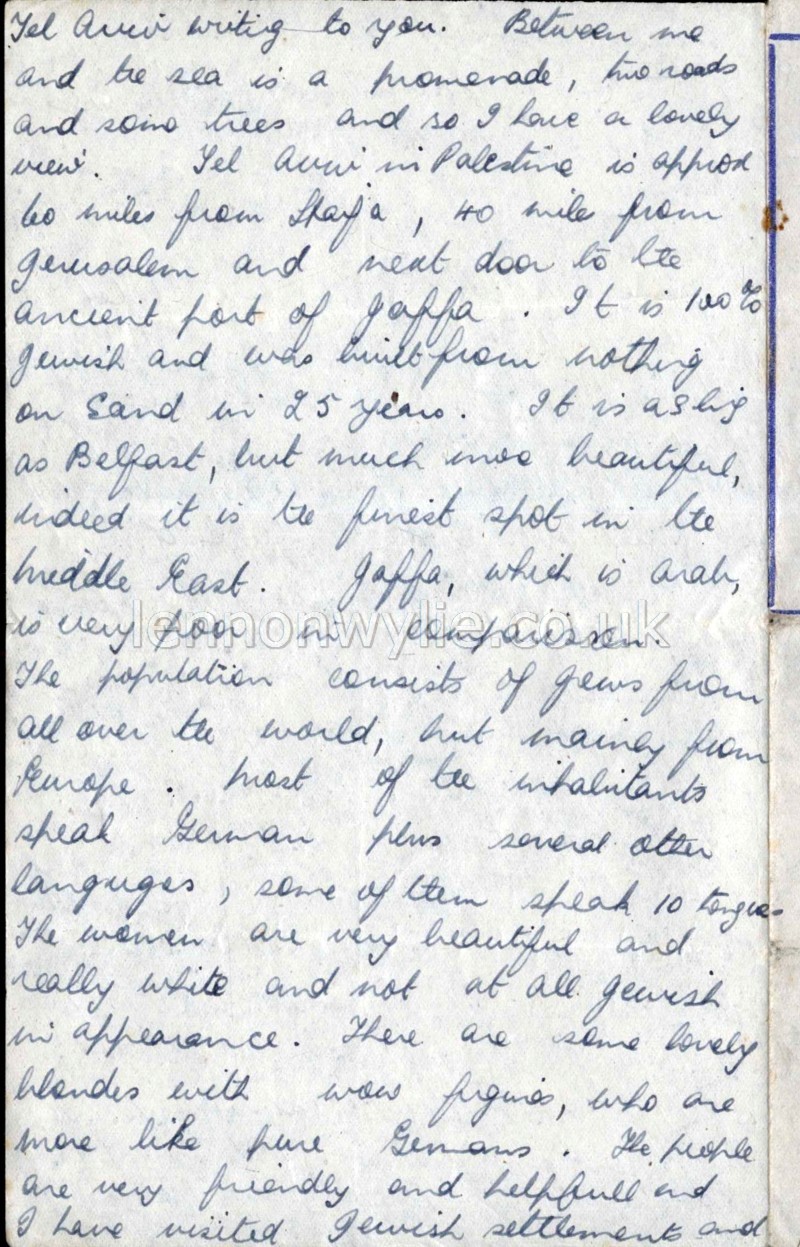 Tel Aviv writig to you. Between me
and the sea is a promenade, two roads
and some trees and so I have a lovely
view. Tel Aviv in Palestine is approx
60 miles from Haifa, 40 miles from
Jerusalem and next door to the
ancient port of Jaffa. It is 100%
Jewish and was built from nothing
on Sand in 25 years. It is as big
as Belfast, but much more beautiful,
indeed it is the finest spot in the
Middle East. Jaffa, which is arab,
is very poor in comparison.
lennonwylie.co.uk
The population consists of Jews from
all over the world, but mainly from
Europe. Most of the inhabitants
speak German plus several other
languges, some of them speak 10 tongues
The women are very beautiful and
really white and not at all Jewish
in appearance. There are some lovely
blondes with wow figures, who are
more like pure Germans. The people
are very friendly and helpfull and
I have visited Jewish settlements and